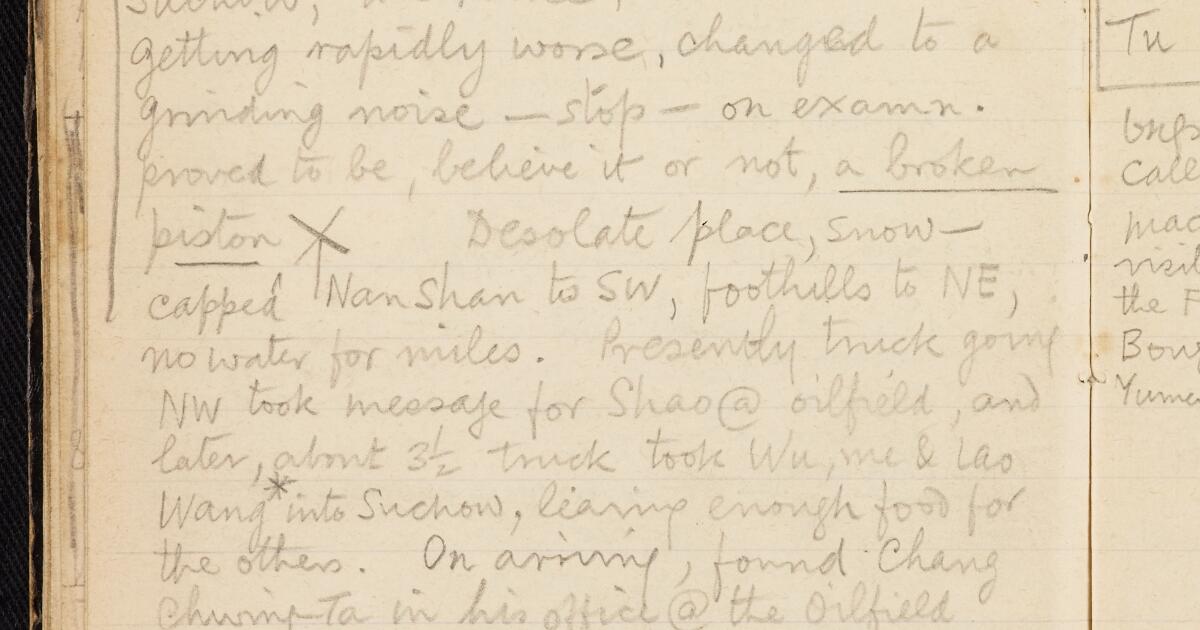 Suchow,
getting rapidly worse, changed to a
grinding noise — stop — on examn.
proved to be, believe it or not, a broken
piston X Desolate place, snow-
capped Nan Shan to SW, foothills to NE,
no water for miles. Presently truck going
NW took message for Shao @ oilfield, and
later, about 3½ truck took Wu, me & Lao
Wang* into Suchow, leaving enough food for
the others. On arriving, found Chang
Chung-Ta in his office @ the Oilfield
Tu
Call
mac
visi
the F
Bow
Yume